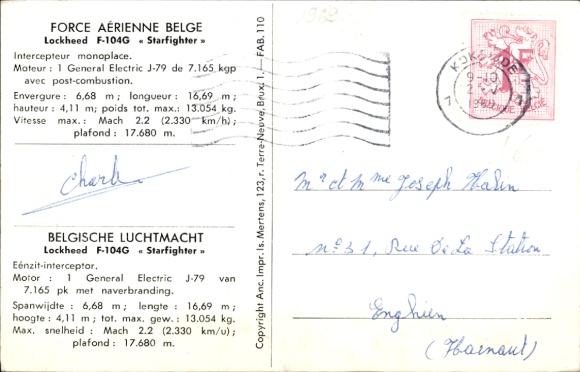 FORCE AÉRIENNE BELGE
Lockheed F-104G « Starfighter »
Intercepteur monoplace.
Moteur : 1 General Electric J-79 de 7.165 kgp
avec post-combustion.
Envergure : 6,68 m ; longueur : 16,69 m ;
hauteur : 4,11 m ; poids tot. max.: 13.054 kg.
Vitesse max.: Mach 2.2 (2.330 km/h) ;
plafond : 17.680 m.
Charles
BELGISCHE LUCHTMACHT
Lockheed F-104G « Starfighter »
Eénzit-interceptor.
Motor : 1 General Electric J-79 van
7.165 pk met naverbranding.
Spanwijdte : 6,68 m ; lengte : 16,69 m ;
hoogte : 4,11 m ; tot. max. gew. : 13.054 kg.
Max. snelheid : Mach 2.2 (2.330 km/u) ;
plafond : 17.680 m.
Copyright Anc. Impr. Is. Mertens, 123, r. Terre-Neuve, Brux. 1. — FAB. 110
1969
KOKSIJDE
9-10
1969
Mr et Mme Joseph Halin
No 31, Rue De La Station
Enghien
(Hainaut)